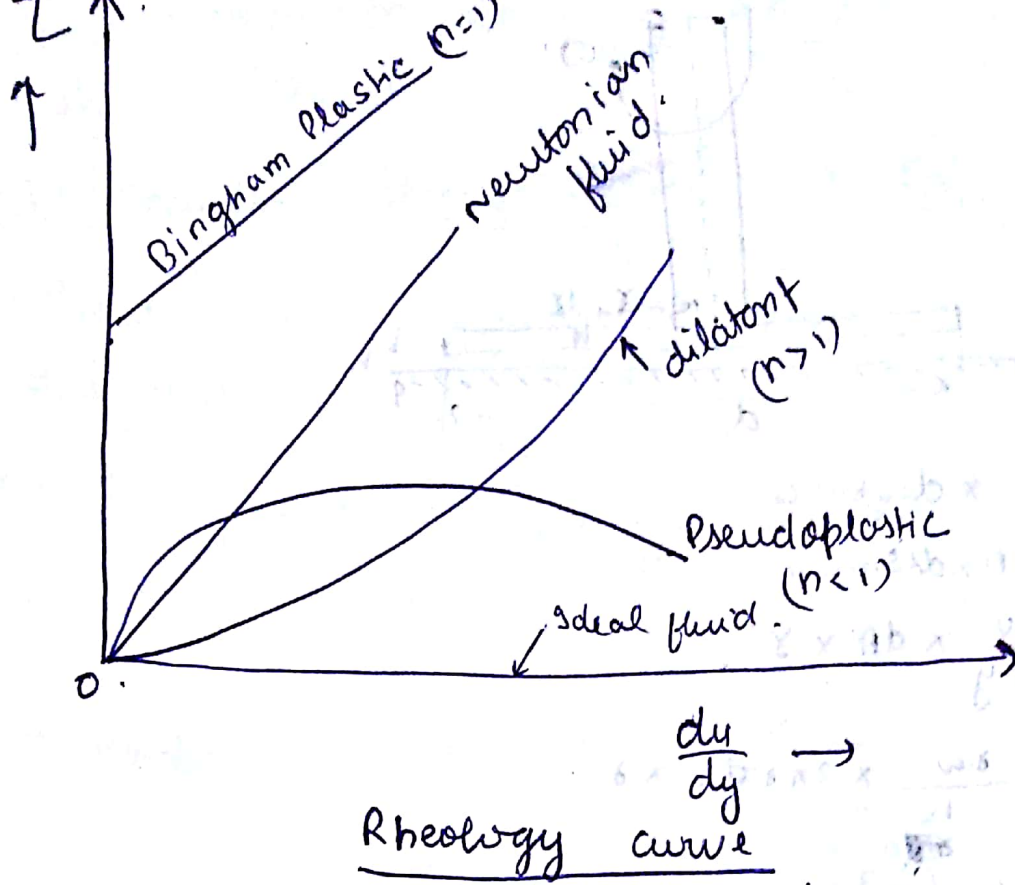 τ
↑
Bingham Plastic (n=1)
Newtonian
fluid.
dilatant
(n>1)
Pseudoplastic
(n<1)
Ideal fluid.
O.
du
dy
→
Rheology curve